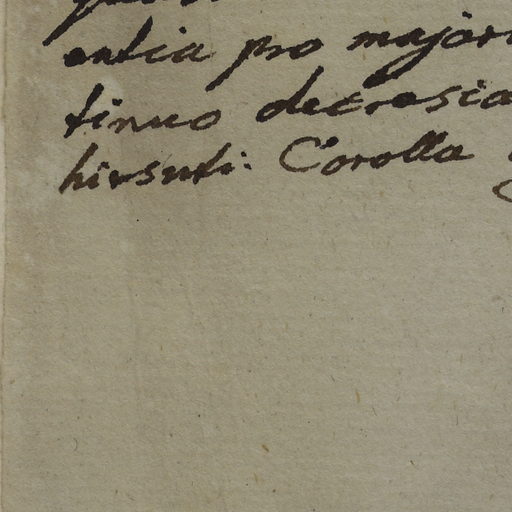 entia pro major
tinuo decresia
hirsuti: Corolla